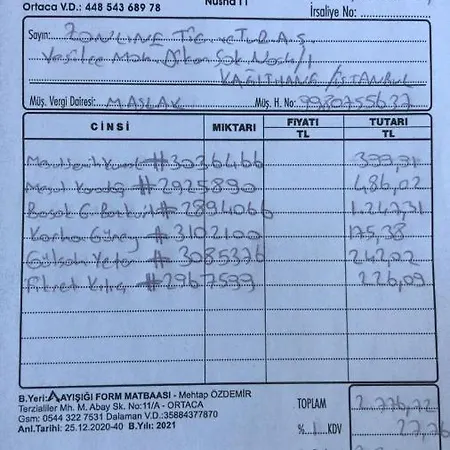 Ortaca V.D.: 448 543 689 78
Nüsha 11
İrsaliye No:
Sayın: ZONLİNE TİC. TUR A.Ş
Yeşilce Mah. Sok No:1/1
KAĞITHANE / İSTANBUL
Müş. Vergi Dairesi: MASLAK Müş. H. No: 9980755637
CİNSİ MİKTARI FİYATI TL TUTARI TL
#3036466 399,91
#2925890 486,02
Başak #2894066 1.247,31
#3102100 175,38
Gülşah Yeter #3085376 242,02
Fikret #2967599 226,09
B.Yeri: AAYIŞIĞI FORM MATBAASI - Mehtap ÖZDEMİR
Terzialiler Mh. M. Abay Sk. No:11/A - ORTACA
Gsm: 0544 322 7531 Dalaman V.D.:35884377870
Anl.Tarihi: 25.12.2020-40 B.Yılı: 2021
TOPLAM 2.776,72
% 1 KDV 27,76